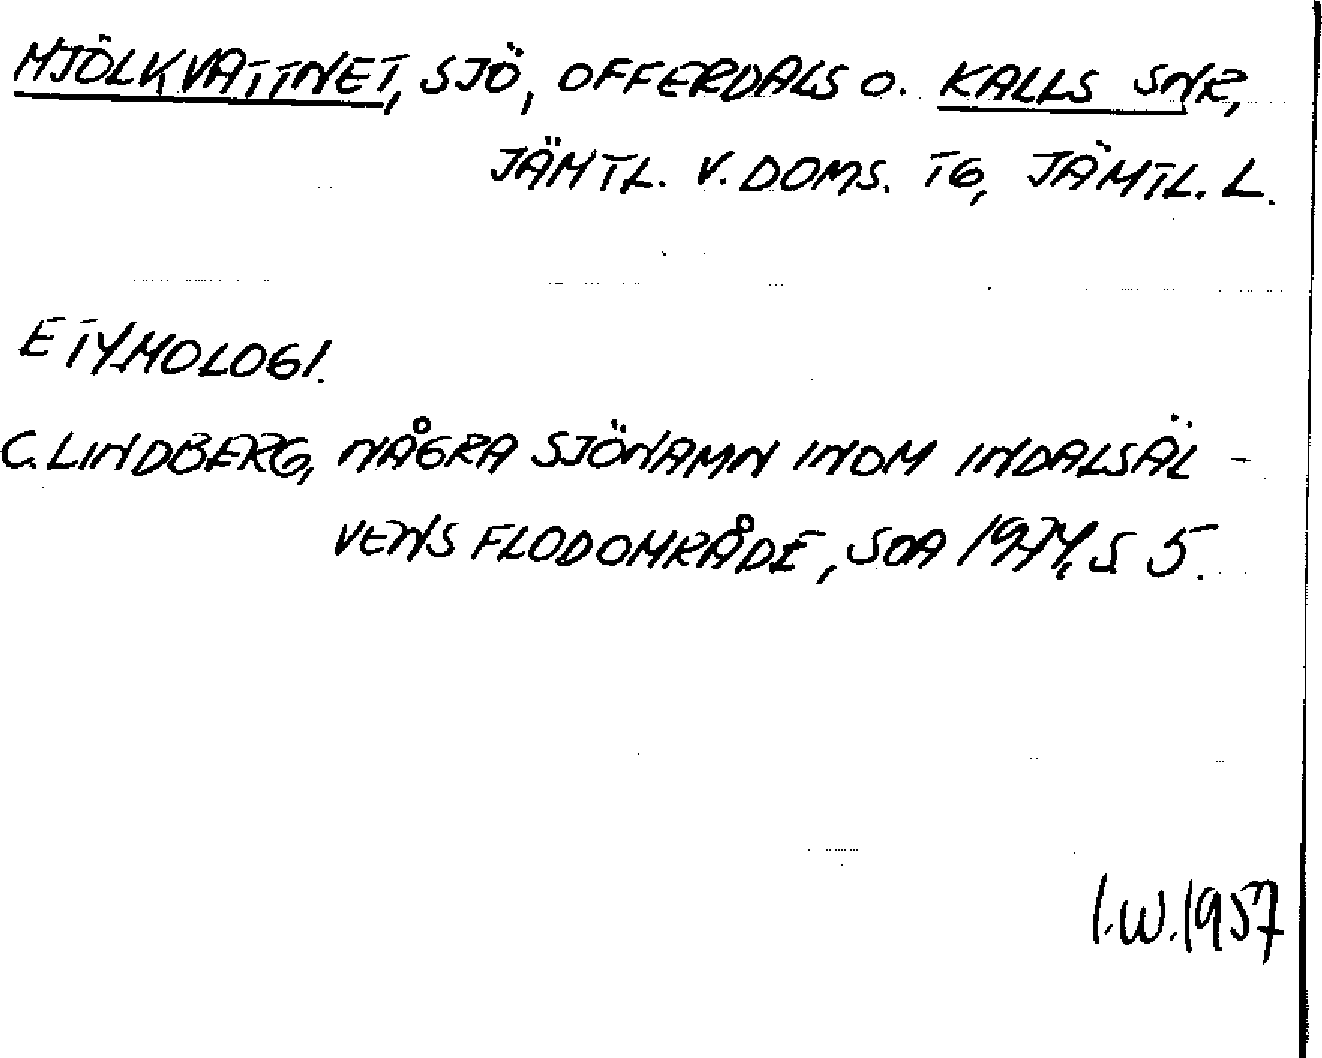 MJÖLKVATTNET, SJÖ, OFFERDALS O. KALLS SNR,
JÄMTL. V. DOMS. TG, JÄMTL. L.
ETYMOLOGI.
C. LINDBERG, NÅGRA SJÖNAMN INOM INDALSÄL-
VENS FLODOMRÅDE, SOA 1974, S 5.
I.W. 1957